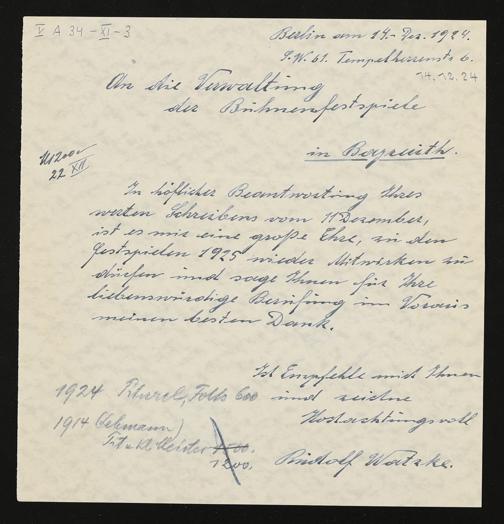 V A 34 - XI - 3
Berlin am 14. Dez. 1924.
S.W. 61. Tempelherrenstr 6.
14.12.24
An die Verwaltung
der Bühnenfestspiele
in Bayreuth.
1200
22 XII
In höflicher Beantwortung Ihres
werten Schreibens vom 11 Dezember,
ist es mir eine große Ehre, zu den
Festspielen 1925 wieder Mitwirken zu
dürfen und sage Ihnen für Ihre
liebenswürdige Berufung im Voraus
meinen besten Dank.
Ich Empfehle mich Ihnen
und zeichne
Hochachtungsvoll
Rudolf Watzke.
1924 Titurel, Solo 600
1914 (Lehmann)
Tit u Kl. Meister
1200.